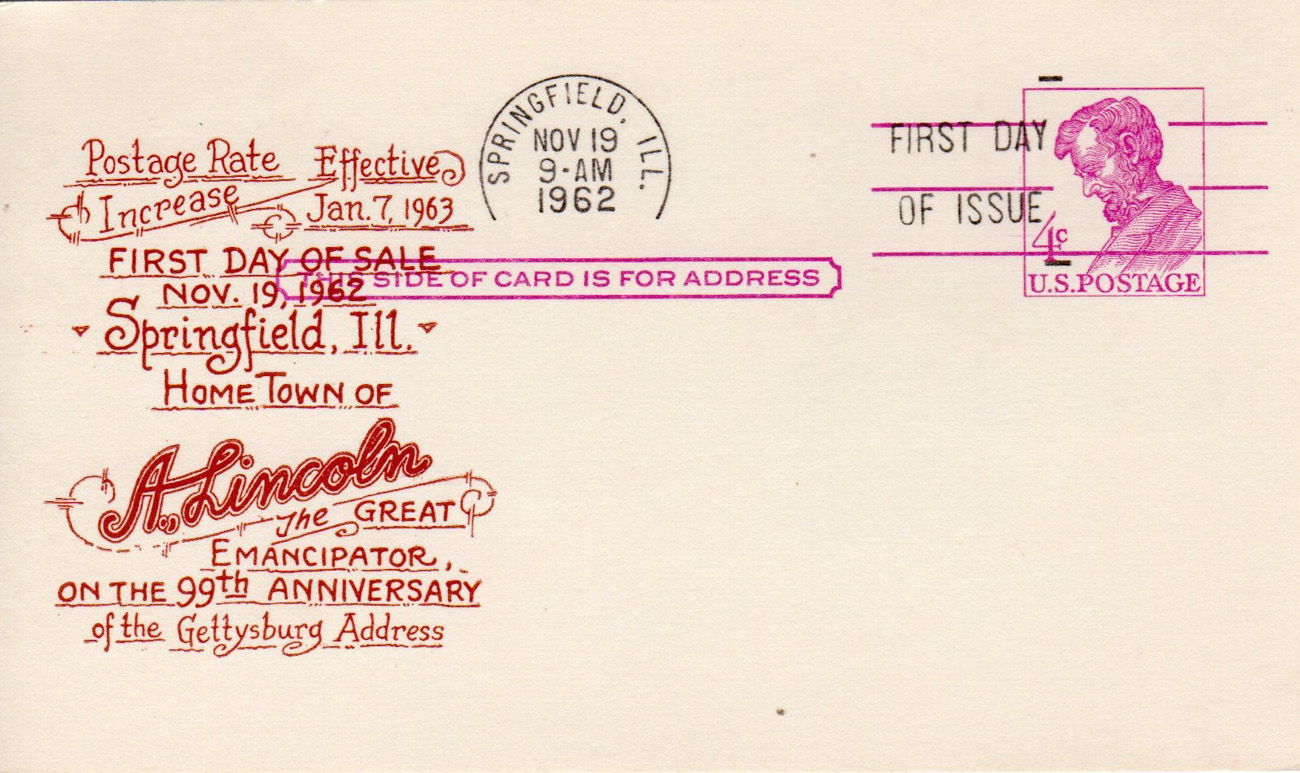 Postage Rate Increase
Effective Jan. 7, 1963
FIRST DAY OF SALE
NOV. 19, 1962
Springfield, Ill.
HOME TOWN OF
A. Lincoln
The GREAT
EMANCIPATOR,
ON THE 99th ANNIVERSARY
of the Gettysburg Address
SPRINGFIELD, ILL.
NOV 19
9-AM
1962
THIS SIDE OF CARD IS FOR ADDRESS
FIRST DAY
OF ISSUE
4c
U.S.POSTAGE